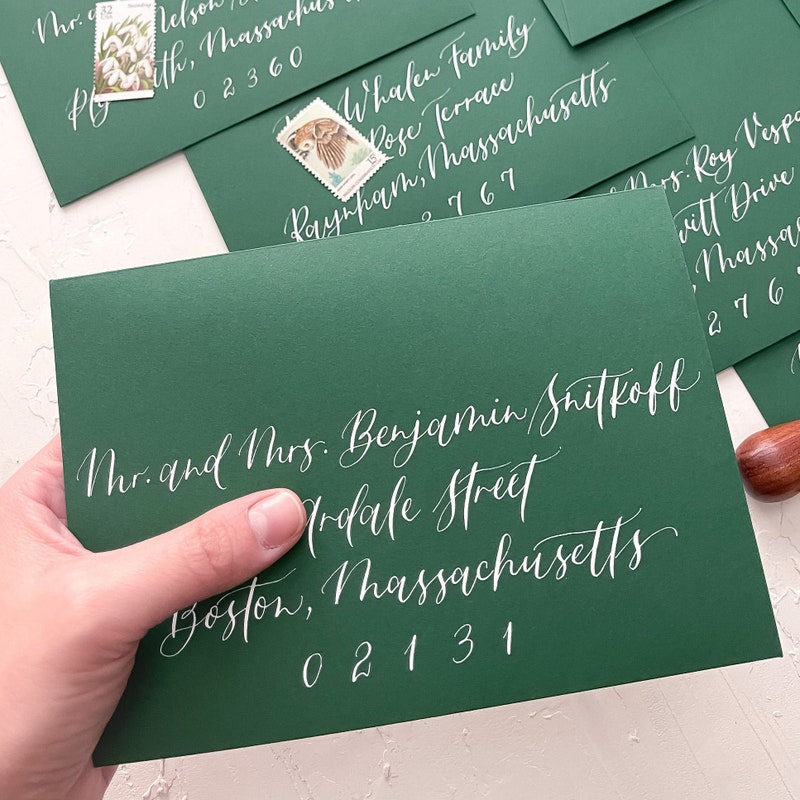 Mr. and Nelson
Massachus
02360
32
USA
Whalen Family
Rose Terrace
Raynham, Massachusetts
2767
15
Mrs. Roy Vespa
Drive
Massa
276
Mr. and Mrs. Benjamin Snitkoff
ardale Street
Boston, Massachusetts
02131